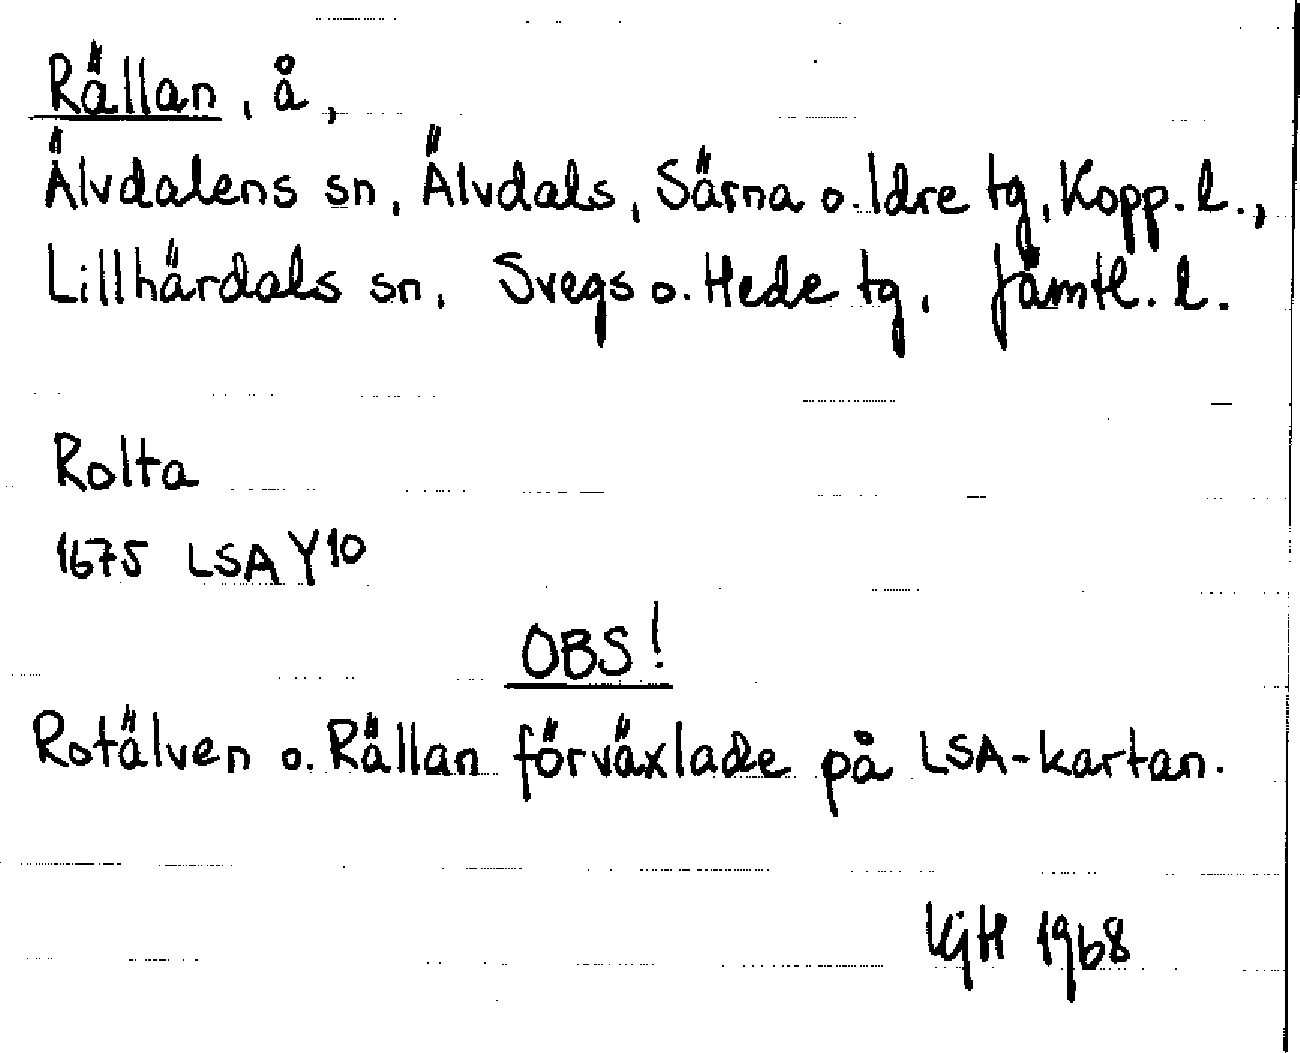 Rällan, å,
Älvdalens sn, Älvdals, Särna o. Idre tg, Kopp. l.,
Lillhärdals sn, Svegs o. Hede tg, Jämtl. l.
Rolta
1675 LSA Y10
OBS!
Rotälven o. Rällan förväxlade på LSA-kartan.
KjH 1968